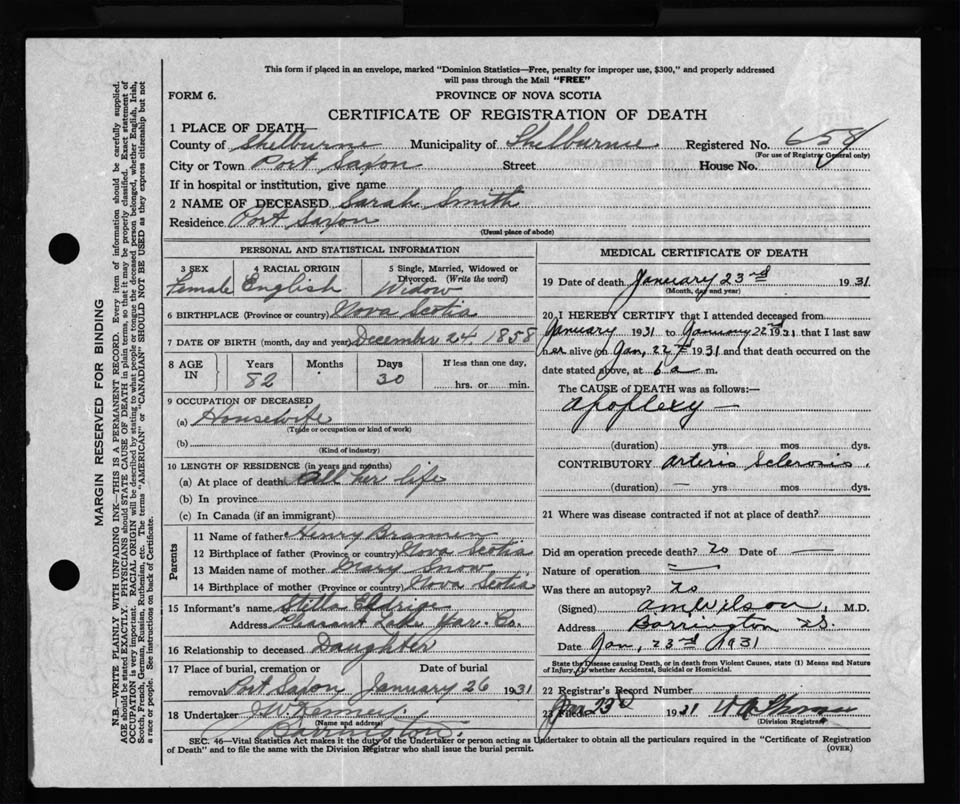 This form if placed in an envelope, marked "Dominion Statistics—Free, penalty for improper use, $300," and properly addressed
will pass through the Mail "FREE"
FORM 6.
PROVINCE OF NOVA SCOTIA
CERTIFICATE OF REGISTRATION OF DEATH
1 PLACE OF DEATH—
County of Shelburne Municipality of Shelburne Registered No. 658
(For use of Registrar General only)
City or Town Port Saxon Street House No.
If in hospital or institution, give name
2 NAME OF DECEASED Sarah Smith
Residence Port Saxon
(Usual place of abode)
PERSONAL AND STATISTICAL INFORMATION
3 SEX
Female
4 RACIAL ORIGIN
English
5 Single, Married, Widowed or
Divorced. (Write the word)
Widow
6 BIRTHPLACE (Province or country) Nova Scotia
7 DATE OF BIRTH (month, day and year) December 24, 1858
8 AGE
IN
Years
82
Months
Days
30
If less than one day,
hrs. or min.
9 OCCUPATION OF DECEASED
(a) Housewife
(Trade or occupation or kind of work)
(b)
(Kind of industry)
10 LENGTH OF RESIDENCE (in years and months)
(a) At place of death all her life
(b) In province
(c) In Canada (if an immigrant)
Parents
11 Name of father Henry
12 Birthplace of father (Province or country) Nova Scotia
13 Maiden name of mother Mary Snow
14 Birthplace of mother (Province or country) Nova Scotia
15 Informant's name Stilla Eldrige
Address Pleasant Lake Yar. Co.
16 Relationship to deceased Daughter
17 Place of burial, cremation or Date of burial
removal Port Saxon January 26 1931
18 Undertaker J W Kenney
(Name and address)
Barrington.
MEDICAL CERTIFICATE OF DEATH
19 Date of death January 23rd 1931
(Month, day and year)
20 I HEREBY CERTIFY that I attended deceased from
January 1931 to January 22 1931 that I last saw
her alive on Jan, 22 1931 and that death occurred on the
date stated above, at 6 a m.
The CAUSE of DEATH was as follows:—
Apoplexy —
(duration) yrs mos dys.
CONTRIBUTORY Arterio Sclerosis.
(duration) — yrs mos dys.
21 Where was disease contracted if not at place of death?
Did an operation precede death? No Date of —
Nature of operation —
Was there an autopsy? No
(Signed) A M Wilson, M.D.
Address Barrington N.S.
Date Jan, 23rd 1931
State the Disease causing Death, or in death from Violent Causes, state (1) Means and Nature
of Injury, (2) whether Accidental, Suicidal or Homicidal.
22 Registrar's Record Number
23 Filed Jan 23rd 1931
(Division Registrar)
SEC. 46—Vital Statistics Act makes it the duty of the Undertaker or person acting as Undertaker to obtain all the particulars required in the "Certificate of Registration
of Death" and to file the same with the Division Registrar who shall issue the burial permit.
(OVER)
MARGIN RESERVED FOR BINDING
N.B.—WRITE PLAINLY WITH UNFADING INK—THIS IS A PERMANENT RECORD. Every item of information should be carefully supplied.
AGE should be stated EXACTLY. PHYSICIANS should STATE CAUSE OF DEATH in plain terms, so that it may be properly classified. Exact statement of
OCCUPATION is very important. RACIAL ORIGIN will be described by stating to what people or tongue the deceased person belonged, whether English, Irish,
Scotch, French, German, Russian, Ruthenian, etc. The terms "AMERICAN" or "CANADIAN" SHOULD NOT BE USED as they express citizenship but not
a race or people. See instructions on back of Certificate.